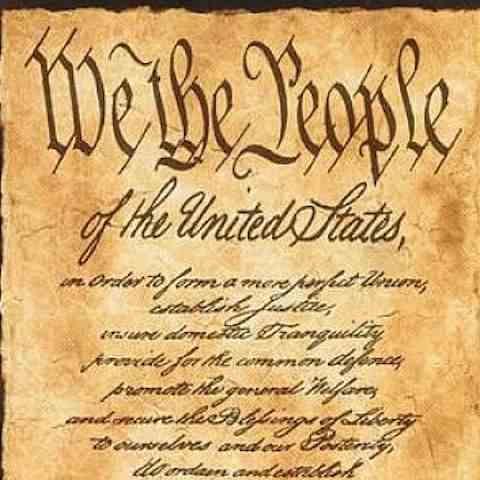 We the People
of the United States,
in Order to form a more perfect Union,
establish Justice,
insure domestic Tranquility
provide for the common defence,
promote the general Welfare,
and secure the Blessings of Liberty
to ourselves and our Posterity,
do ordain and establish